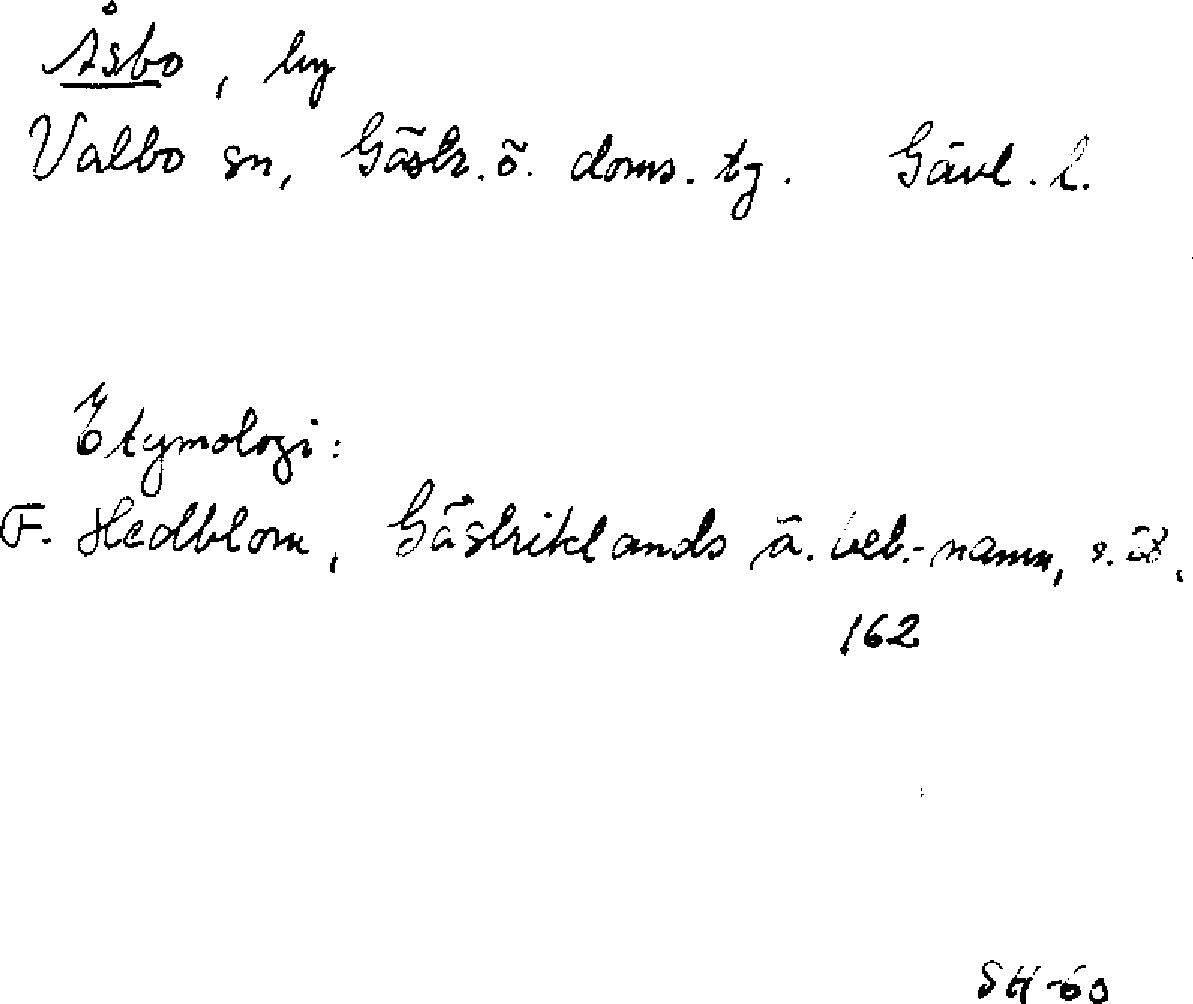 Åsbo, by
Valbo sn, Gästr. ö. doms. tg. Gävl. l.
Etymologi:
F. Hedblom, Gästriklands ä. beb.-namn, s.
162
SH -60